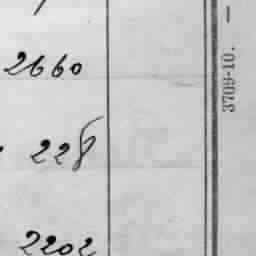 2660
228
2202
3709-10. —